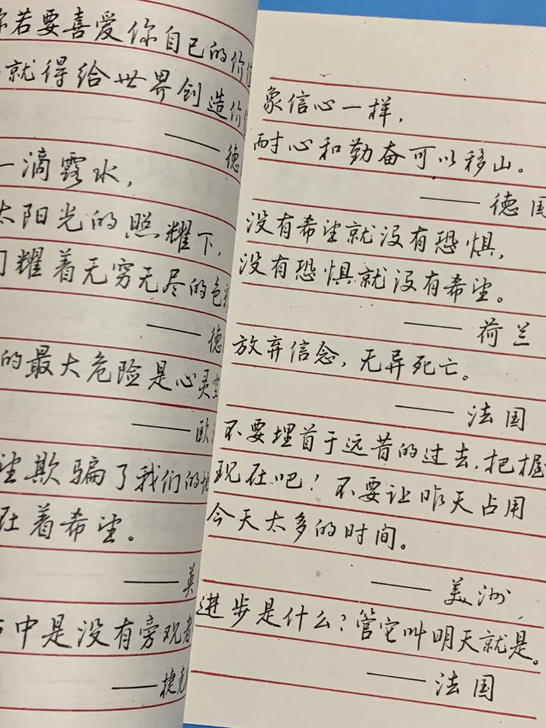 你若要喜爱你自己的价
就得给世界创造
—— 德
一滴露水,
太阳光的照耀下,
耀着无穷无尽的色
—— 德
的最大危险是心灵
—— 欧
欺骗了我们的
在着希望。
—— 英
中是没有旁观者
—— 捷克
象信心一样,
耐心和勤奋可以移山。
—— 德国
没有希望就没有恐惧,
没有恐惧就没有希望。
—— 荷兰
放弃信念,无异死亡。
—— 法国
不要埋首于远昔的过去,把握
现在吧!不要让昨天占用
今天太多的时间。
—— 美洲
进步是什么?管它叫明天就是。
—— 法国